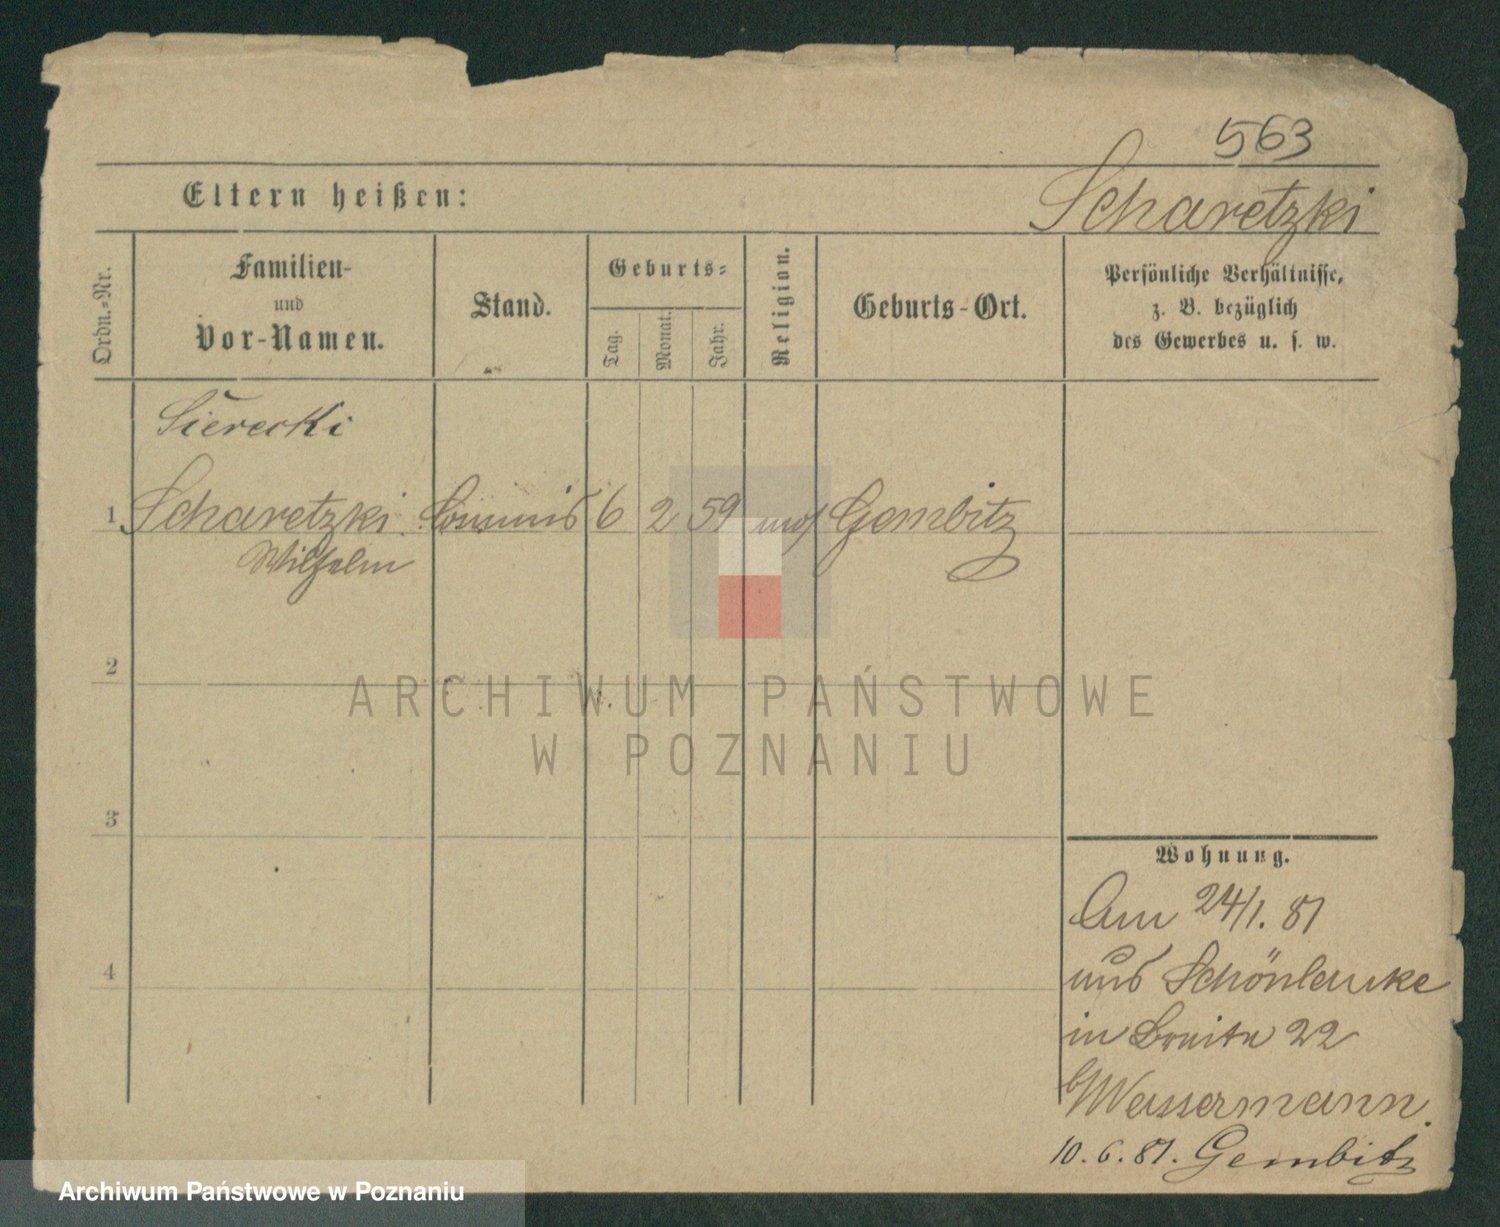 563
Eltern heißen:
Scharetzki
Ordn.-Nr.
Familien-
und
Vor-Namen.
Stand.
Geburts-
Tag.
Monat.
Jahr.
Religion.
Geburts-Ort.
Persönliche Verhältnisse,
z. B. bezüglich
des Gewerbes u. s. w.
Sierecki
1 Scharetzki Commis 6 2 59 mos Gembitz
Wilhelm
2
3
4
ARCHIWUM PAŃSTWOWE
W POZNANIU
Wohnung.
Am 24/1. 81
aus Schönlanke
in Breite 22
b/ Wassermann.
10. 6. 81. Gembitz
Archiwum Państwowe w Poznaniu